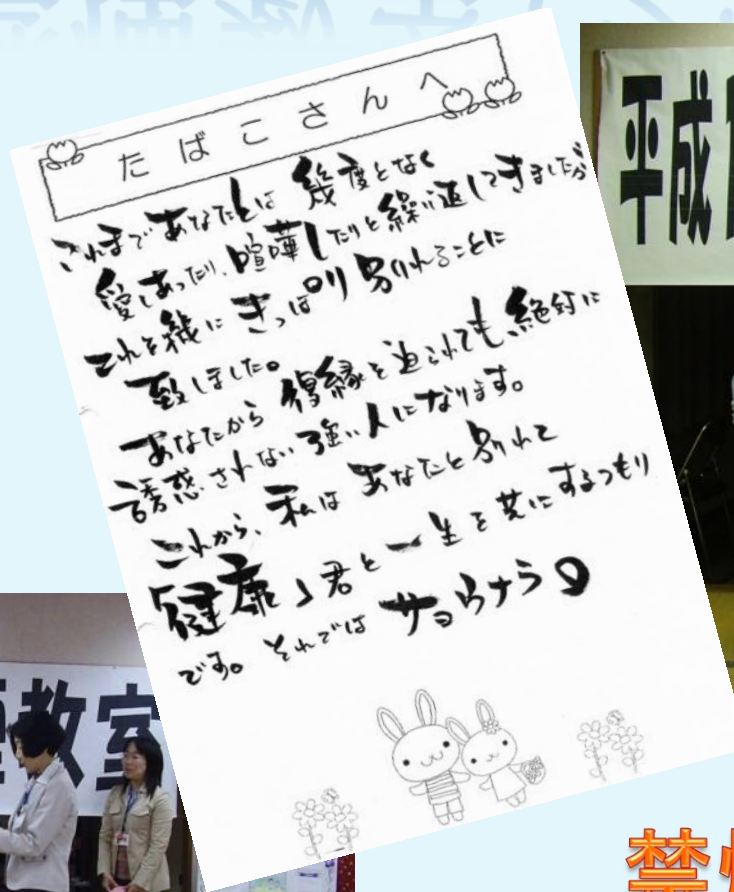 たばこさんへ
これまであなたとは 幾度となく
愛しあったり、喧嘩したりと繰り返してきましたが
これを機に きっぱり 別れることに
致しました。
あなたから 復縁を迫られても、絶対に
誘惑されない 強い人になります。
これから、私は あなたと別れて
「健康」君と 一生を共にするつもり
です。それでは サヨウナラ
平成
教室
禁